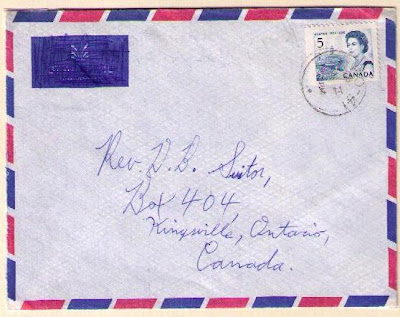 5
CANADA
Rev. D. B. Suitor,
Box 404
Kingsville, Ontario,
Canada.